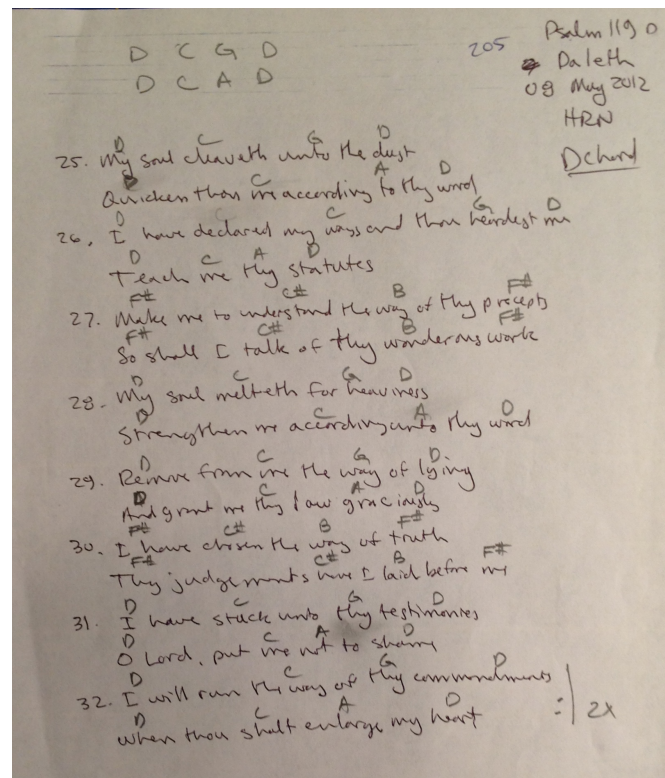 D C G D
D C A D
205
Psalm 119 D
Daleth
08 May 2012
HRN
D chord
D C G D
25. My soul cleaveth unto the dust
D C A D
Quicken thou me according to thy word
D C G D
26. I have declared my ways and thou heardest me
D C A D
Teach me thy statutes
F# C# B F#
27. Make me to understand the way of thy precepts
F# C# B F#
So shall I talk of thy wonderous work
D C G D
28. My soul melteth for heaviness
D C A D
Strengthen me according unto thy word
D C G D
29. Remove from me the way of lying
D C A D
And grant me thy law graciously
F# C# B F#
30. I have chosen the way of truth
F# C# B F#
Thy judgements have I laid before me
D C G D
31. I have stuck unto thy testimonies
D C A D
O Lord, put me not to shame
D C G D
32. I will run the way of thy commandments
D C A D
when thou shalt enlarge my heart
:| 2x